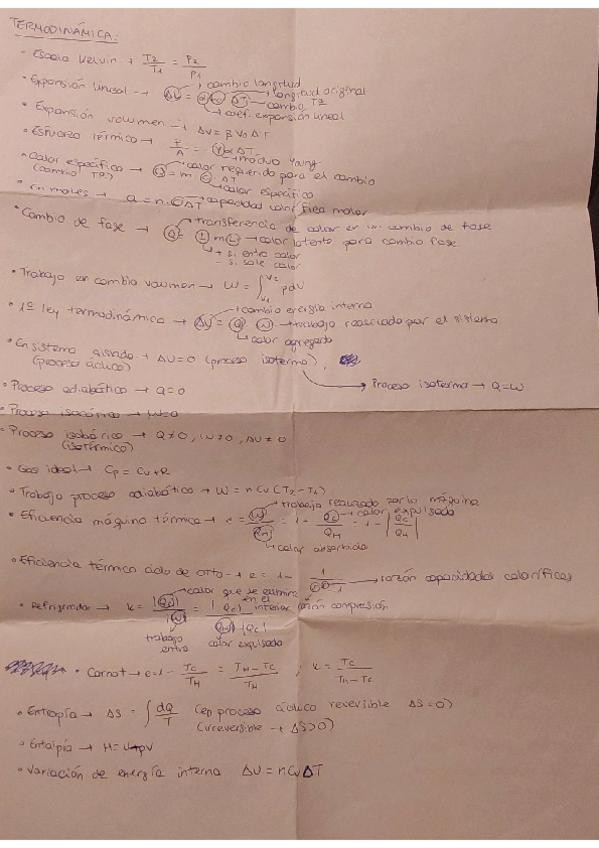 TERMODINÁMICA:
• Escala Kelvin → T2/T1 = P2/P1
• Expansión lineal → ΔL = α L0 ΔT
cambio longitud
longitud original
cambio Tª
coef. expansión lineal
• Expansión volumen → ΔV = β V0 ΔT
• Esfuerzo térmico → F/A = -Y α ΔT
módulo Young
• Calor específico → Q = m c ΔT
(cambio Tª)
calor requerido para el cambio
calor específico
• En moles → Q = n · C ΔT
capacidad calorífica molar
• Cambio de fase → Q = ± m L
transferencia de calor en un cambio de fase
calor latente para cambio fase
+ si entra calor
- si sale calor
• Trabajo en cambio volumen → W = ∫V1 V2 p dV
• 1ª ley termodinámica → ΔU = Q W
cambio energía interna
trabajo realizado por el sistema
calor agregado
• En sistema aislado → ΔU = 0 (proceso isotermo),
(proceso cíclico)
→ Proceso isotermo → Q = W
• Proceso adiabático → Q = 0
• Proceso isocórico → W = 0
• Proceso isobárico → Q ≠ 0, W ≠ 0, ΔU ≠ 0
(isotérmico)
• Gas ideal → Cp = Cv + R
• Trabajo proceso adiabático → W = n Cv (T2 - T1)
• Eficiencia máquina térmica → e = W/QH = 1 - QC/QH = 1 - |QC/QH|
trabajo realizado por la máquina
calor expulsado
calor absorbido
• Eficiencia térmica ciclo de Otto → e = 1 -
1
razón capacidades caloríficas
razón compresión
• Refrigerador → k = |QC|/|W| = |QC|/|QH| |QC|
calor que se elimina
en el
interior
trabajo
entra
calor expulsado
• Carnot → e = 1 - TC/TH = TH - TC/TH ; k = TC/TH - TC
• Entropía → ΔS = ∫ dQ/T (en proceso cíclico reversible ΔS = 0)
(irreversible → ΔS > 0)
• Entalpía → H = U + pV
• Variación de energía interna ΔU = n Cv ΔT